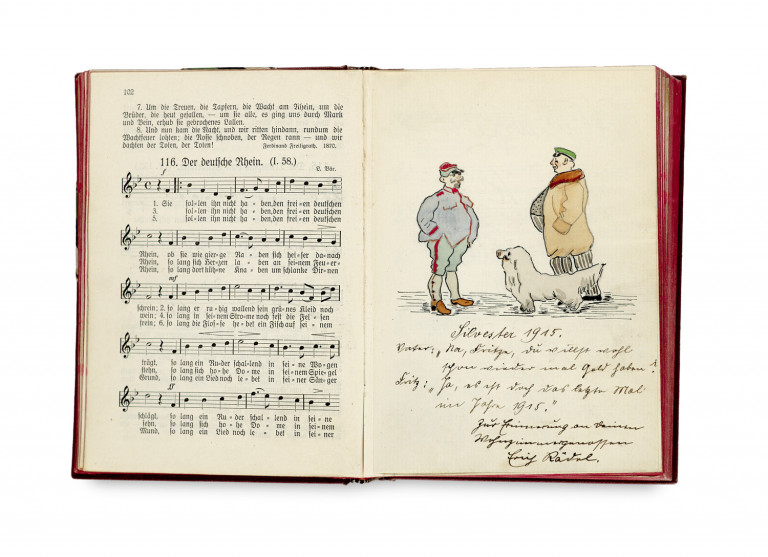 102
7. Um die Treuen, die Tapfern, die Wacht am Rhein, um die
Brüder, die heut gefallen, — um sie alle, es ging uns durch Mark
und Bein, erhub sie gebrochenes Lallen.
8. Und nun kam die Nacht, und wir ritten hindann, rundum die
Wachtfeuer lohten; die Rosse schnoben, der Regen rann — und wir
dachten der Toten, der Toten!
Ferdinand Freiligrath. 1870.
116. Der deutsche Rhein. (I. 58.)
f
1. Sie sol-len ihn nicht ha-ben, den frei-en deutschen
3. sol-len ihn nicht ha-ben, den frei-en deutschen
5. sol-len ihn nicht ha-ben, den frei-en deutschen
Rhein, ob sie wie gier-ge Ra-ben sich hei-ser da-nach
Rhein, so lang sich Her-zen la-ben an sei-nem Feu-er-
Rhein, so lang dort küh-ne Kna-ben um schlanke Dir-nen
mf
schrein; 2. so lang er ru-hig wallend sein grü-nes Kleid noch
wein; 4. so lang in sei-nem Stro-me noch fest die Fel-sen
frein; 6. so lang die Flos-se he-bet ein Fisch auf sei-nem
f
trägt, so lang ein Ru-der schal-lend in sei-ne Wo-gen
stehn, so lang sich ho-he Do-me in sei-nem Spie-gel
Grund, so lang ein Lied noch le-bet in sei-ner Sän-ger
ff
schlägt, so lang ein Ru-der schal-lend in sei-ne
sehn, so lang sich ho-he Do-me in sei-nem
Mund, so lang ein Lied noch le-bet in sei-ner
Silvester 1915.
Vater: „Na, Fritze, du willst wohl
schon wieder mal Geld haben?
Fritz: „Ja, es ist doch das letzte Mal
im Jahre 1915."
Zur Erinnerung an Deinen
Wohnzimmergenossen
Erich Rädel.